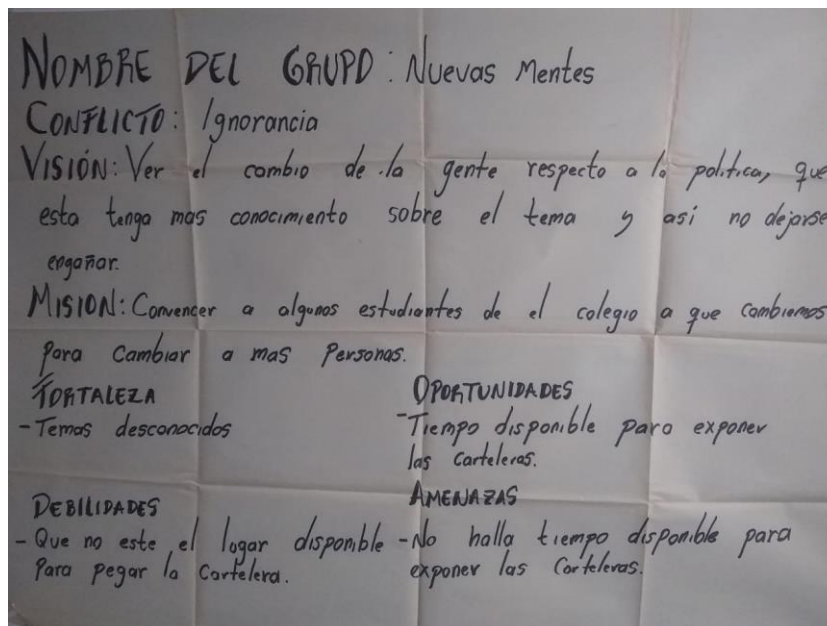 NOMBRE DEL GRUPO: Nuevas Mentes
CONFLICTO: Ignorancia
VISIÓN: Ver el cambio de la gente respecto a la politica, que
esta tenga mas conocimiento sobre el tema y así no dejarse
engañar.
MISION: Convencer a algunos estudiantes de el colegio a que cambiemos
para cambiar a mas Personas.
FORTALEZA
- Temas desconocidos
OPORTUNIDADES
- Tiempo disponible para exponer
las carteleras.
DEBILIDADES
- Que no este el lugar disponible
Para pegar la Cartelera.
AMENAZAS
- No halla tiempo disponible para
exponer las Carteleras.